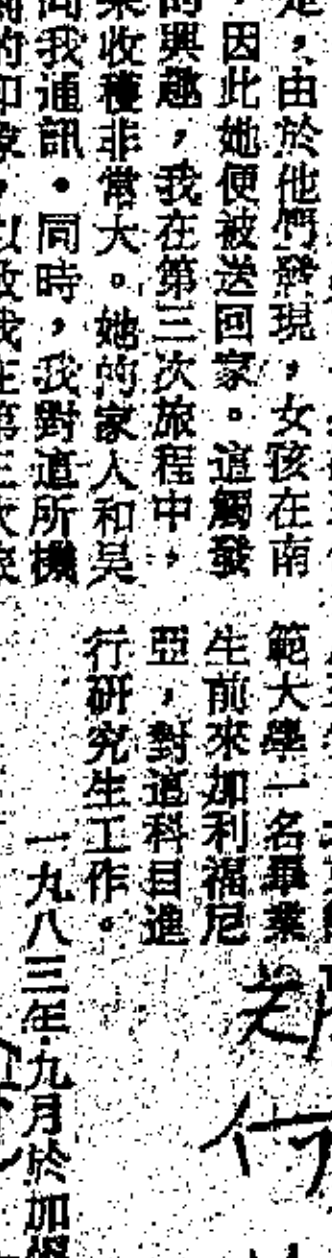 是，由於他們發現，女孩在南
，因此她便被送回家。這觸發
的興趣，我在第三次旅程中，
果收穫非常大。她的家人和吳
同我通訊。同時，我對這所機
的印象，以致我在第三次旅
範大學一名畢業
生前來加利福尼
亞，對這科目進
行研究生工作。
一九八三年九月於加